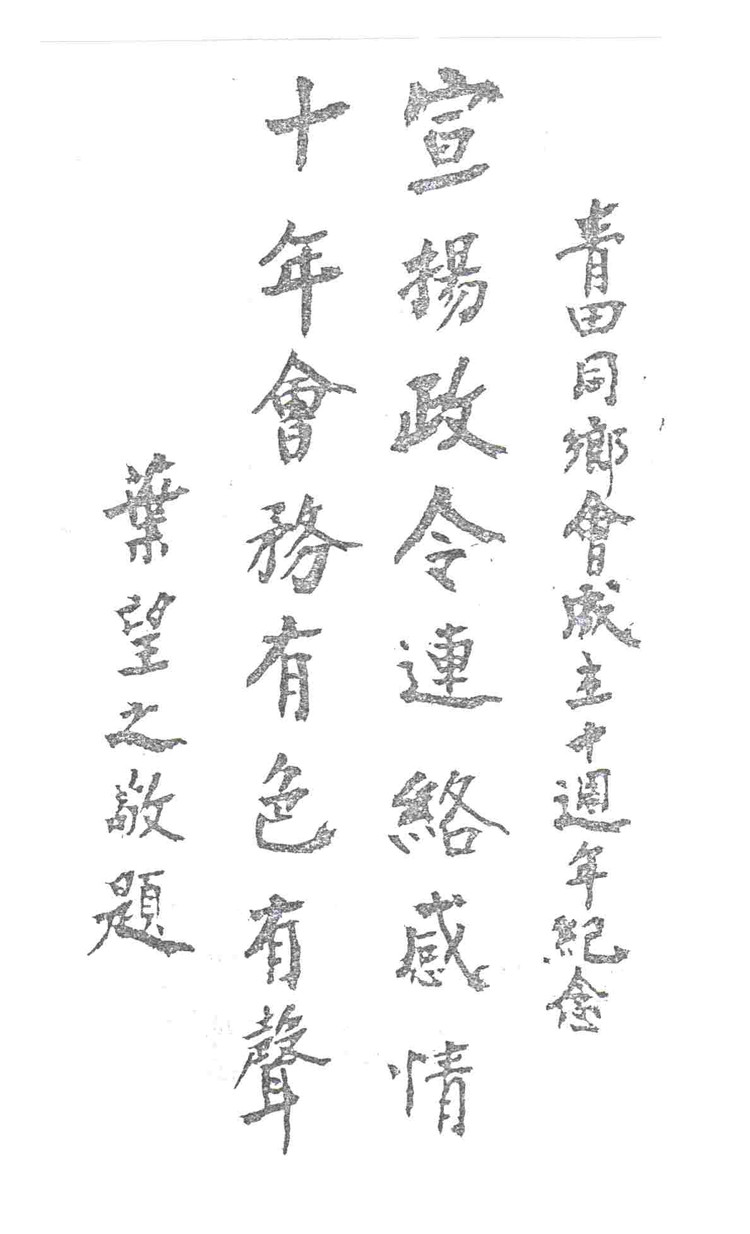 青田同鄉會成立十週年紀念
宣揚政令連絡感情
十年會務有色有聲
葉望之敬題